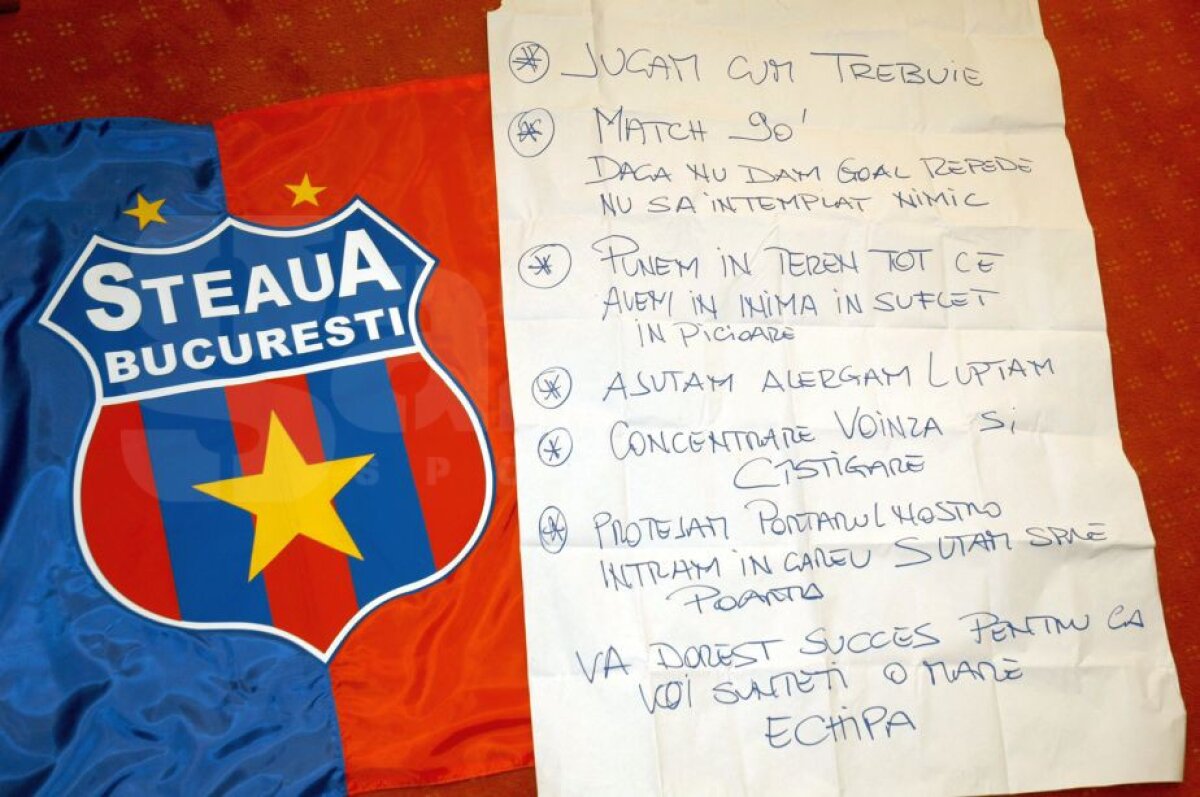 STEAUA
BUCURESTI
JUGAM CUM TREBUIE
MATCH 90'
DACA NU DAM GOAL REPEDE
NU SA INTEMPLAT NIMIC
PUNEM IN TEREN TOT CE
AVEM IN INIMA IN SUFLET
IN PICIOARE
AJUTAM ALERGAM LUPTAM
CONCENTRARE VOINZA SI
CISTIGARE
PROTEJAM PORTARUL NOSTRO
INTRAM IN CAREU SUTAM SPRE
POARTA
VA DOREST SUCCES PENTRU CA
VOI SUNTETI O MARE
ECHIPA